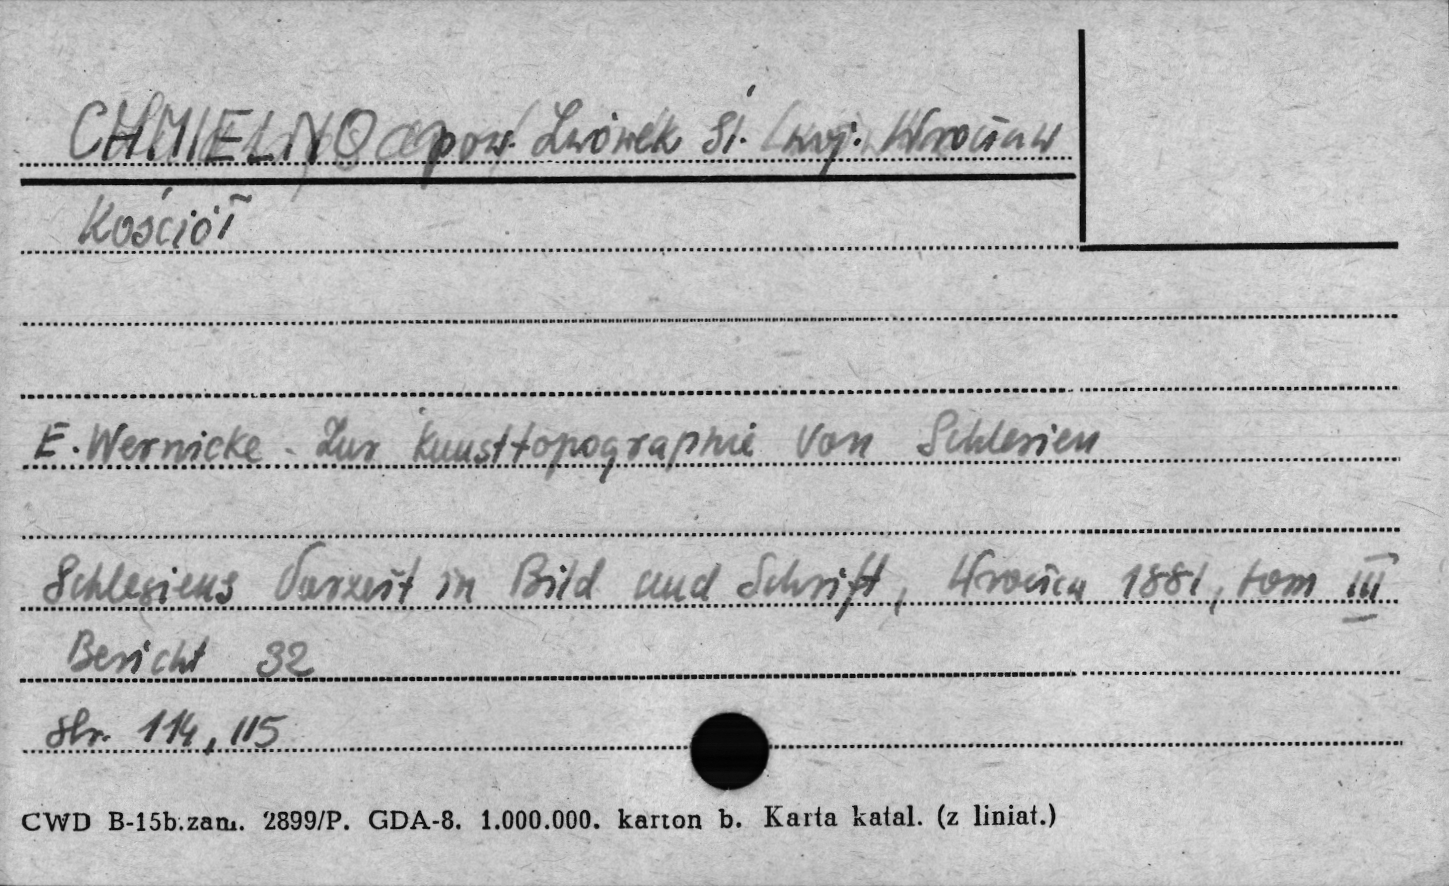 CHMIELNO pow. Lwówek Śl. woj. Wrocław
Kościół
E. Wernicke - Zur Kunsttopographie von Schlesien
Schlesiens Vorzeit in Bild und Schrift, Wrocław 1881, tom III
Bericht 32
str. 114, 115
CWD B-15b.zam. 2899/P. GDA-8. 1.000.000. karton b. Karta katal. (z liniat.)